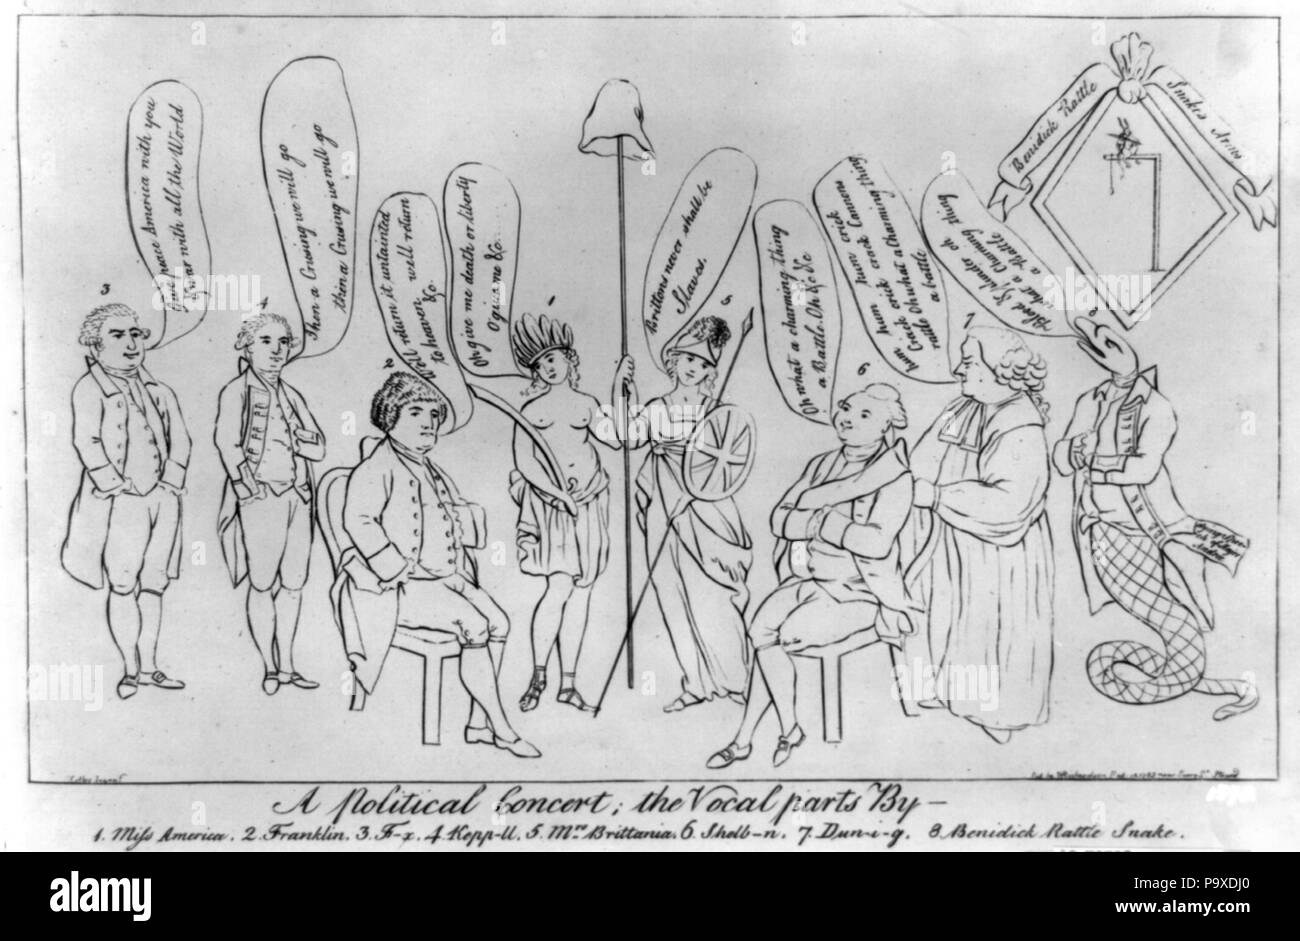 3
Give peace America with you
& war with all the World
4
Then a Crusing we will go
then a Crusing we will go
2
I'll return it untainted
to heaven, well return
&c.
Oh give me death or liberty
O give me &c.
1
Brittons never shall be
Slaves.
5
Oh what a charming thing
a Battle. Oh &c &c
6
hum crick hum crick
hum crick crick Cannons
Crick Oh what a Charming thing
a battle
7
Blood & plunder oh
what a Charming thing
a Battle
8
Benidick Rattle
Snakes Arms
A Political Concert; the Vocal parts By—
1. Miss America. 2. Franklin. 3. F-x. 4. Kepp-ll. 5. Mrs Brittania. 6. Shelb-n. 7. Dun-i-g. 8. Benidick Rattle Snake.
alamy
Image ID: P9XDJ0
www.alamy.com